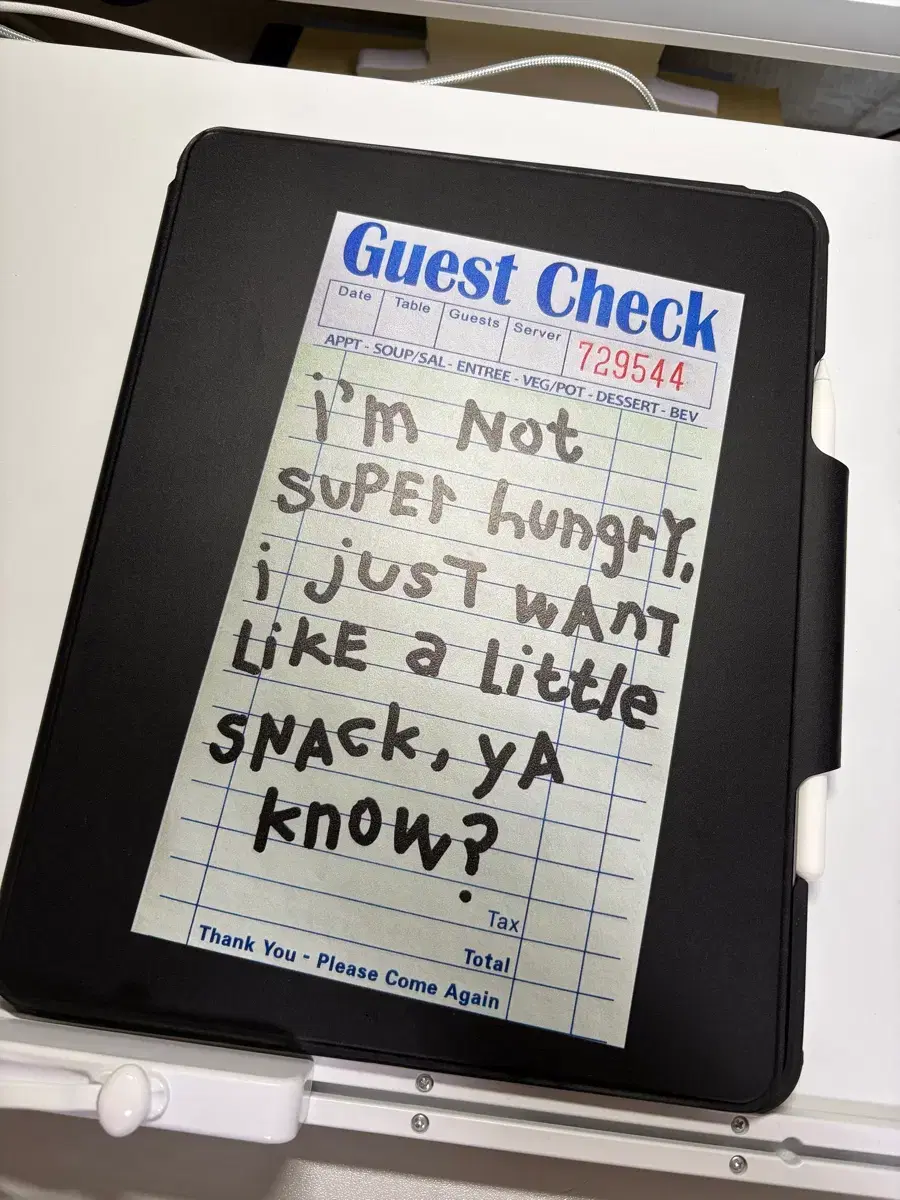 Guest Check
Date Table Guests Server 729544
APPT - SOUP/SAL - ENTREE - VEG/POT - DESSERT - BEV
i'm Not
SUPEr hungrY,
i jUsT wAnT
LiKE a Little
SNAck, yA
know?
Tax
Total
Thank You - Please Come Again